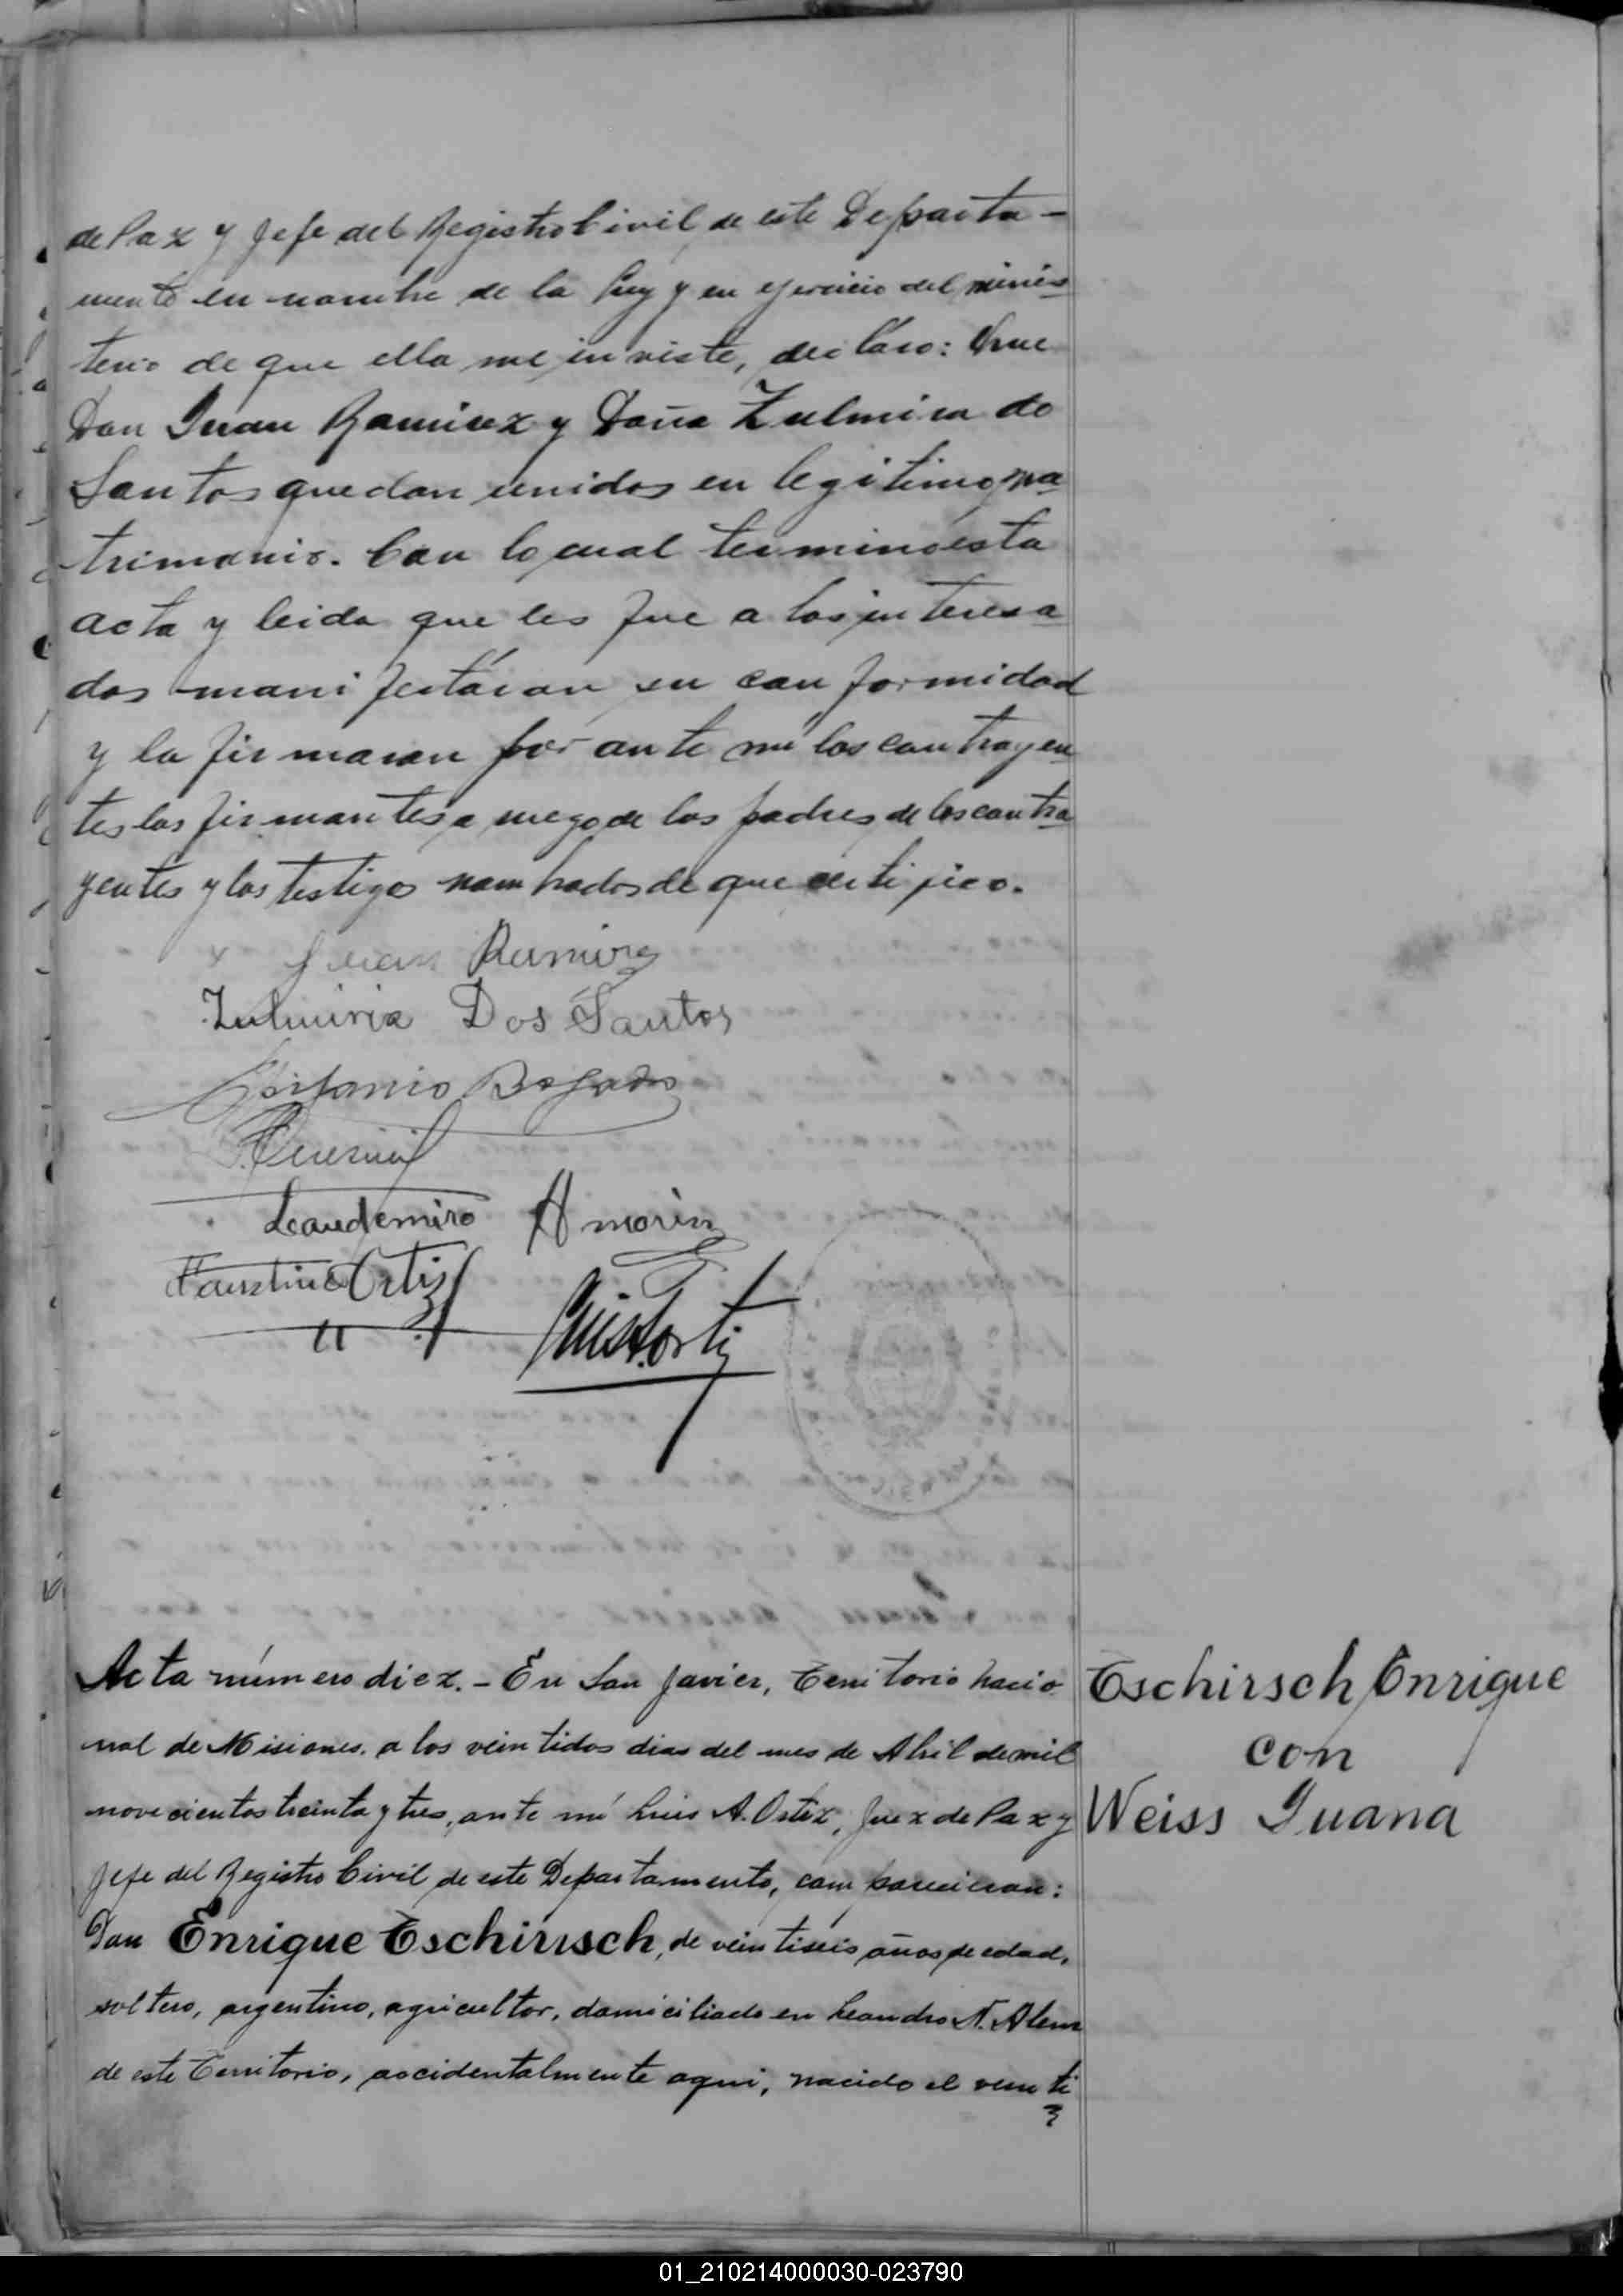 de Paz y Jefe del Registro Civil de este Departa-
mento en nombre de la Ley y en ejercicio del minis
terio de que ella me inviste, declaro: Que
Don Juan Ramirez y Doña Zulmira do
Santos quedan unidos en legitimo ma
trimonio. Con lo cual terminó esta
acta y leida que les fue a los interesa
dos manifestáron su conformidad
y la firmaron por ante mi los contrayen
tes los firmantes a ruego de los padres de los contra
yentes y los testigos nombrados de que certifico.
x Juan Ramirez
Zulmira Dos Santos
Bogado
Laudemiro Amorin
Faustino Ortiz
Acta número diez.- En San Javier, Territorio Nacio
nal de Misiones, a los veintidos dias del mes de Abril de mil
novecientos treinta y tres, ante mi Luis A. Ortiz, Juez de Paz y
Jefe del Registro Civil de este Departamento, comparecieron:
Don Enrique Tschirisch, de veintiseis años de edad,
soltero, argentino, agricultor, domiciliado en Leandro N. Alem
de este Territorio, accidentalmente aqui, nacido el veinti
Tschirsch Enrique
con
Weiss Juana
01_210214000030-023790